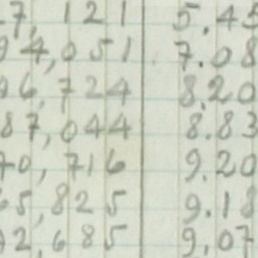 7, 121 5.45
4,051 7.08
6,724 8.20
87,044 8.83
70, 716 9.20
5,825 9.18
2,685 9.07